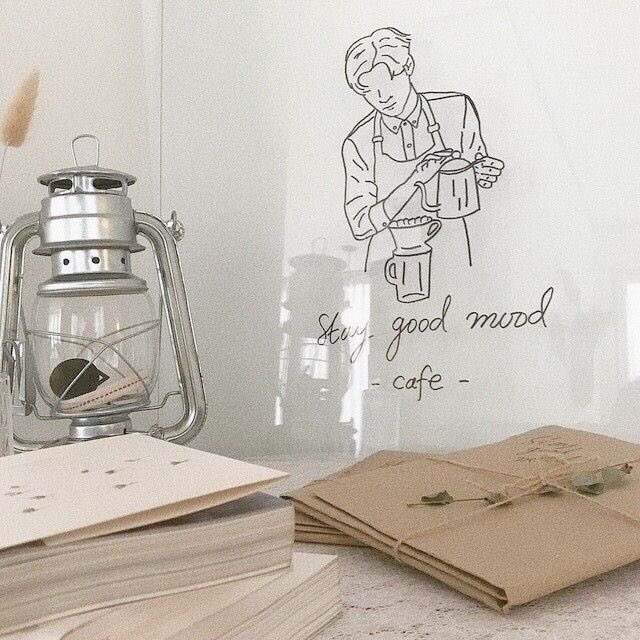 Stay good mood
- cafe -